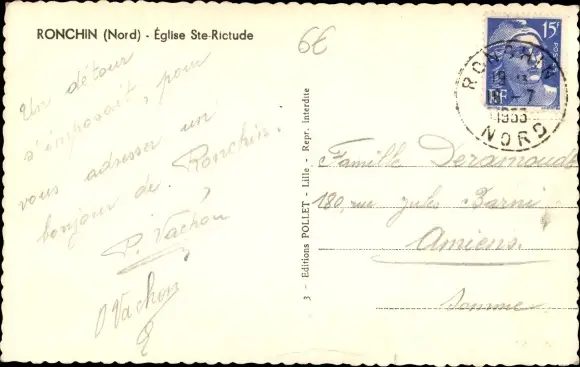 RONCHIN (Nord) - Église Ste-Rictude
6E
Un détour
s'imposait, pour
vous adresser un
bonjour de Ronchin.
P. Vachon
O Vachon
3 - Editions POLLET - Lille - Repr. Interdite
15F
POSTES
RF
RONCHIN
19 H
8 - 7
1953
NORD
Famille Deramaude
180, rue Jules Barni
Amiens.
Somme